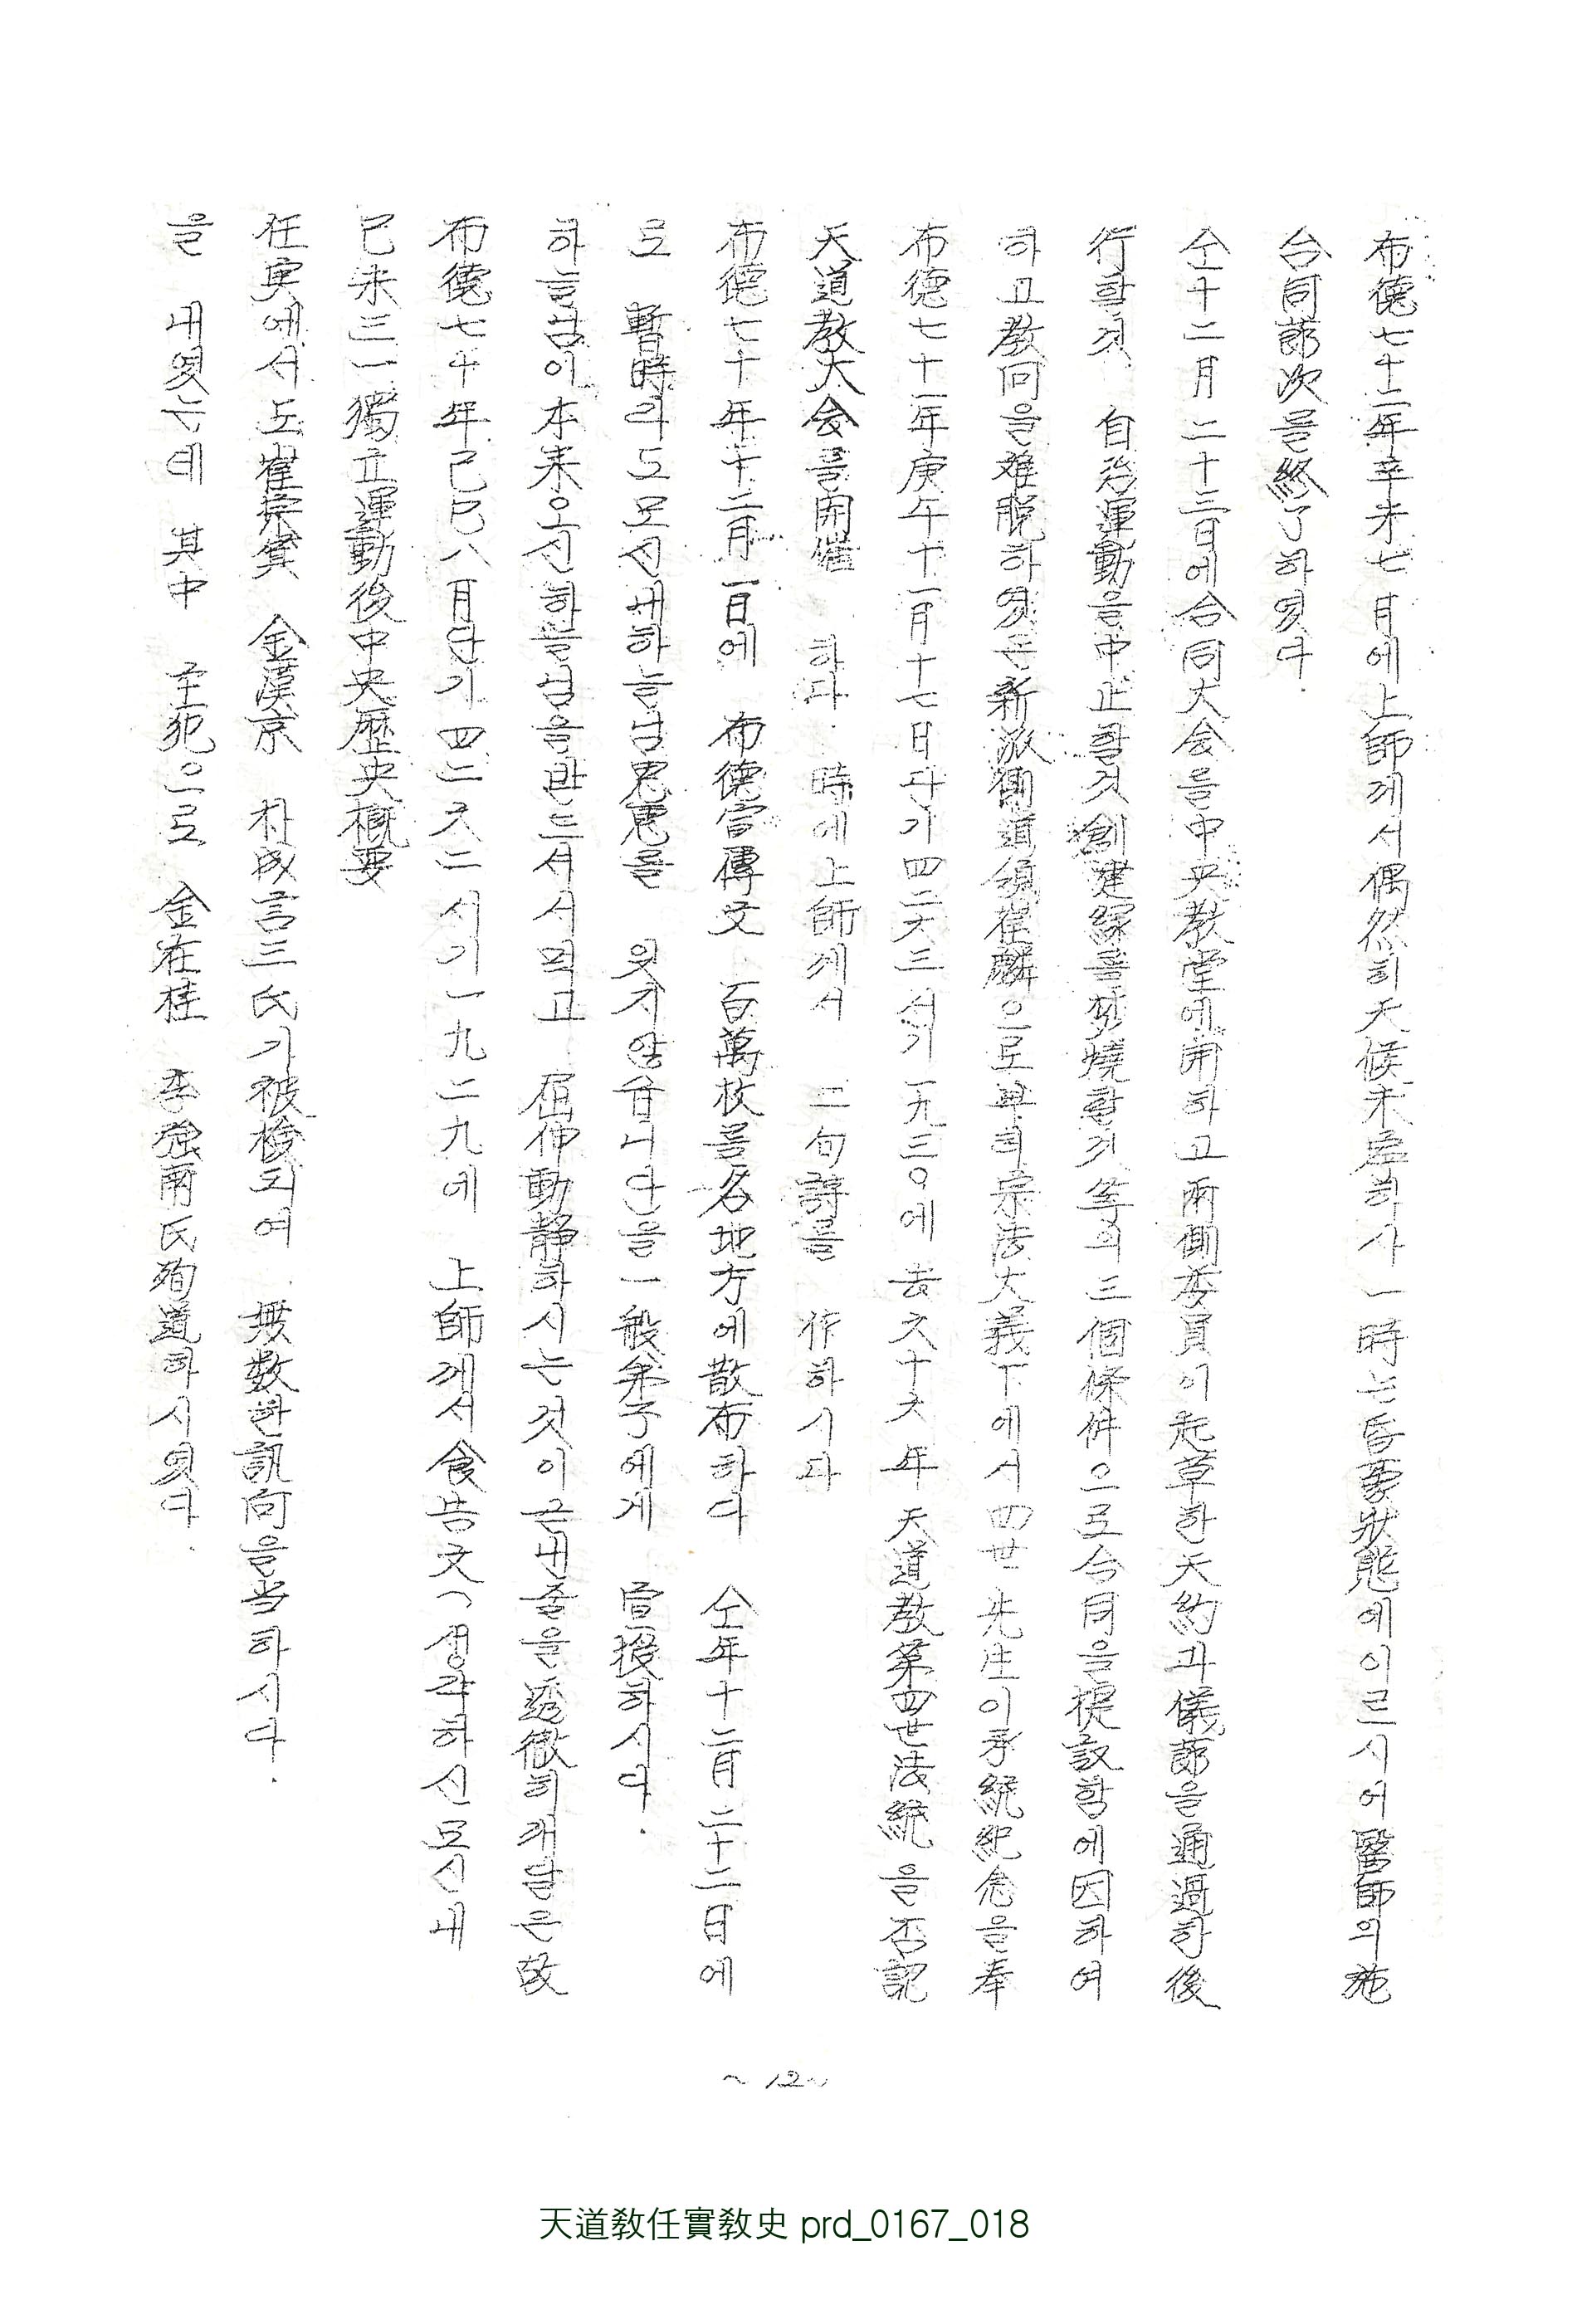 을 내엿는데 其中 主犯으로 金在桂 李強兩氏殉道하시엿다.
任実에서도崔宗箕 金漢京 朴成言三氏가被檢되여 無数한訊问을当하시다.
己未三一獨立運動後中央歷史概要
布德七十年己巳八月단기四二六二서기一九二九에 上師께서食告文(생각하신모신내
하늘님이本来오신하늘님을만드셔서먹고 屈伸動静하시는것이근내줄을透徹히깨달은故
로 暫時라도모신내하늘님恩惠를 잇지않습니다을一般弟子에게 宣授하시다.
布德七十年十二月一日에 布德宣傳文 百萬枚를各地方에散布하다 仝年十二月二十二日에
天道教大会를開催 하다. 時에上師께서 二句詩를 作하시다
布德七十一年庚午十一月十七日단기四二六三서기一九三〇에 去六十六年 天道教第四世法統을否認
하고教会을難脫하엿든新派側道領崔麟으로부터宗法大義下에서四世先生이承統紀念을奉
行할것 自治運動을中止할것創建録를焚燒할것等의三個條件으로合同을提議함에因하여
仝十二月二十三日에合同大会을中央教堂에開하고兩側委員이起草한天約과儀節을通過한後
合同節次를終了하엿다.
布德七十二年辛未七月에上師께서偶然히天候未寧하사一時는昏蒙狀態에이르시어醫師의施
~12~
天道敎任實敎史 prd_0167_018